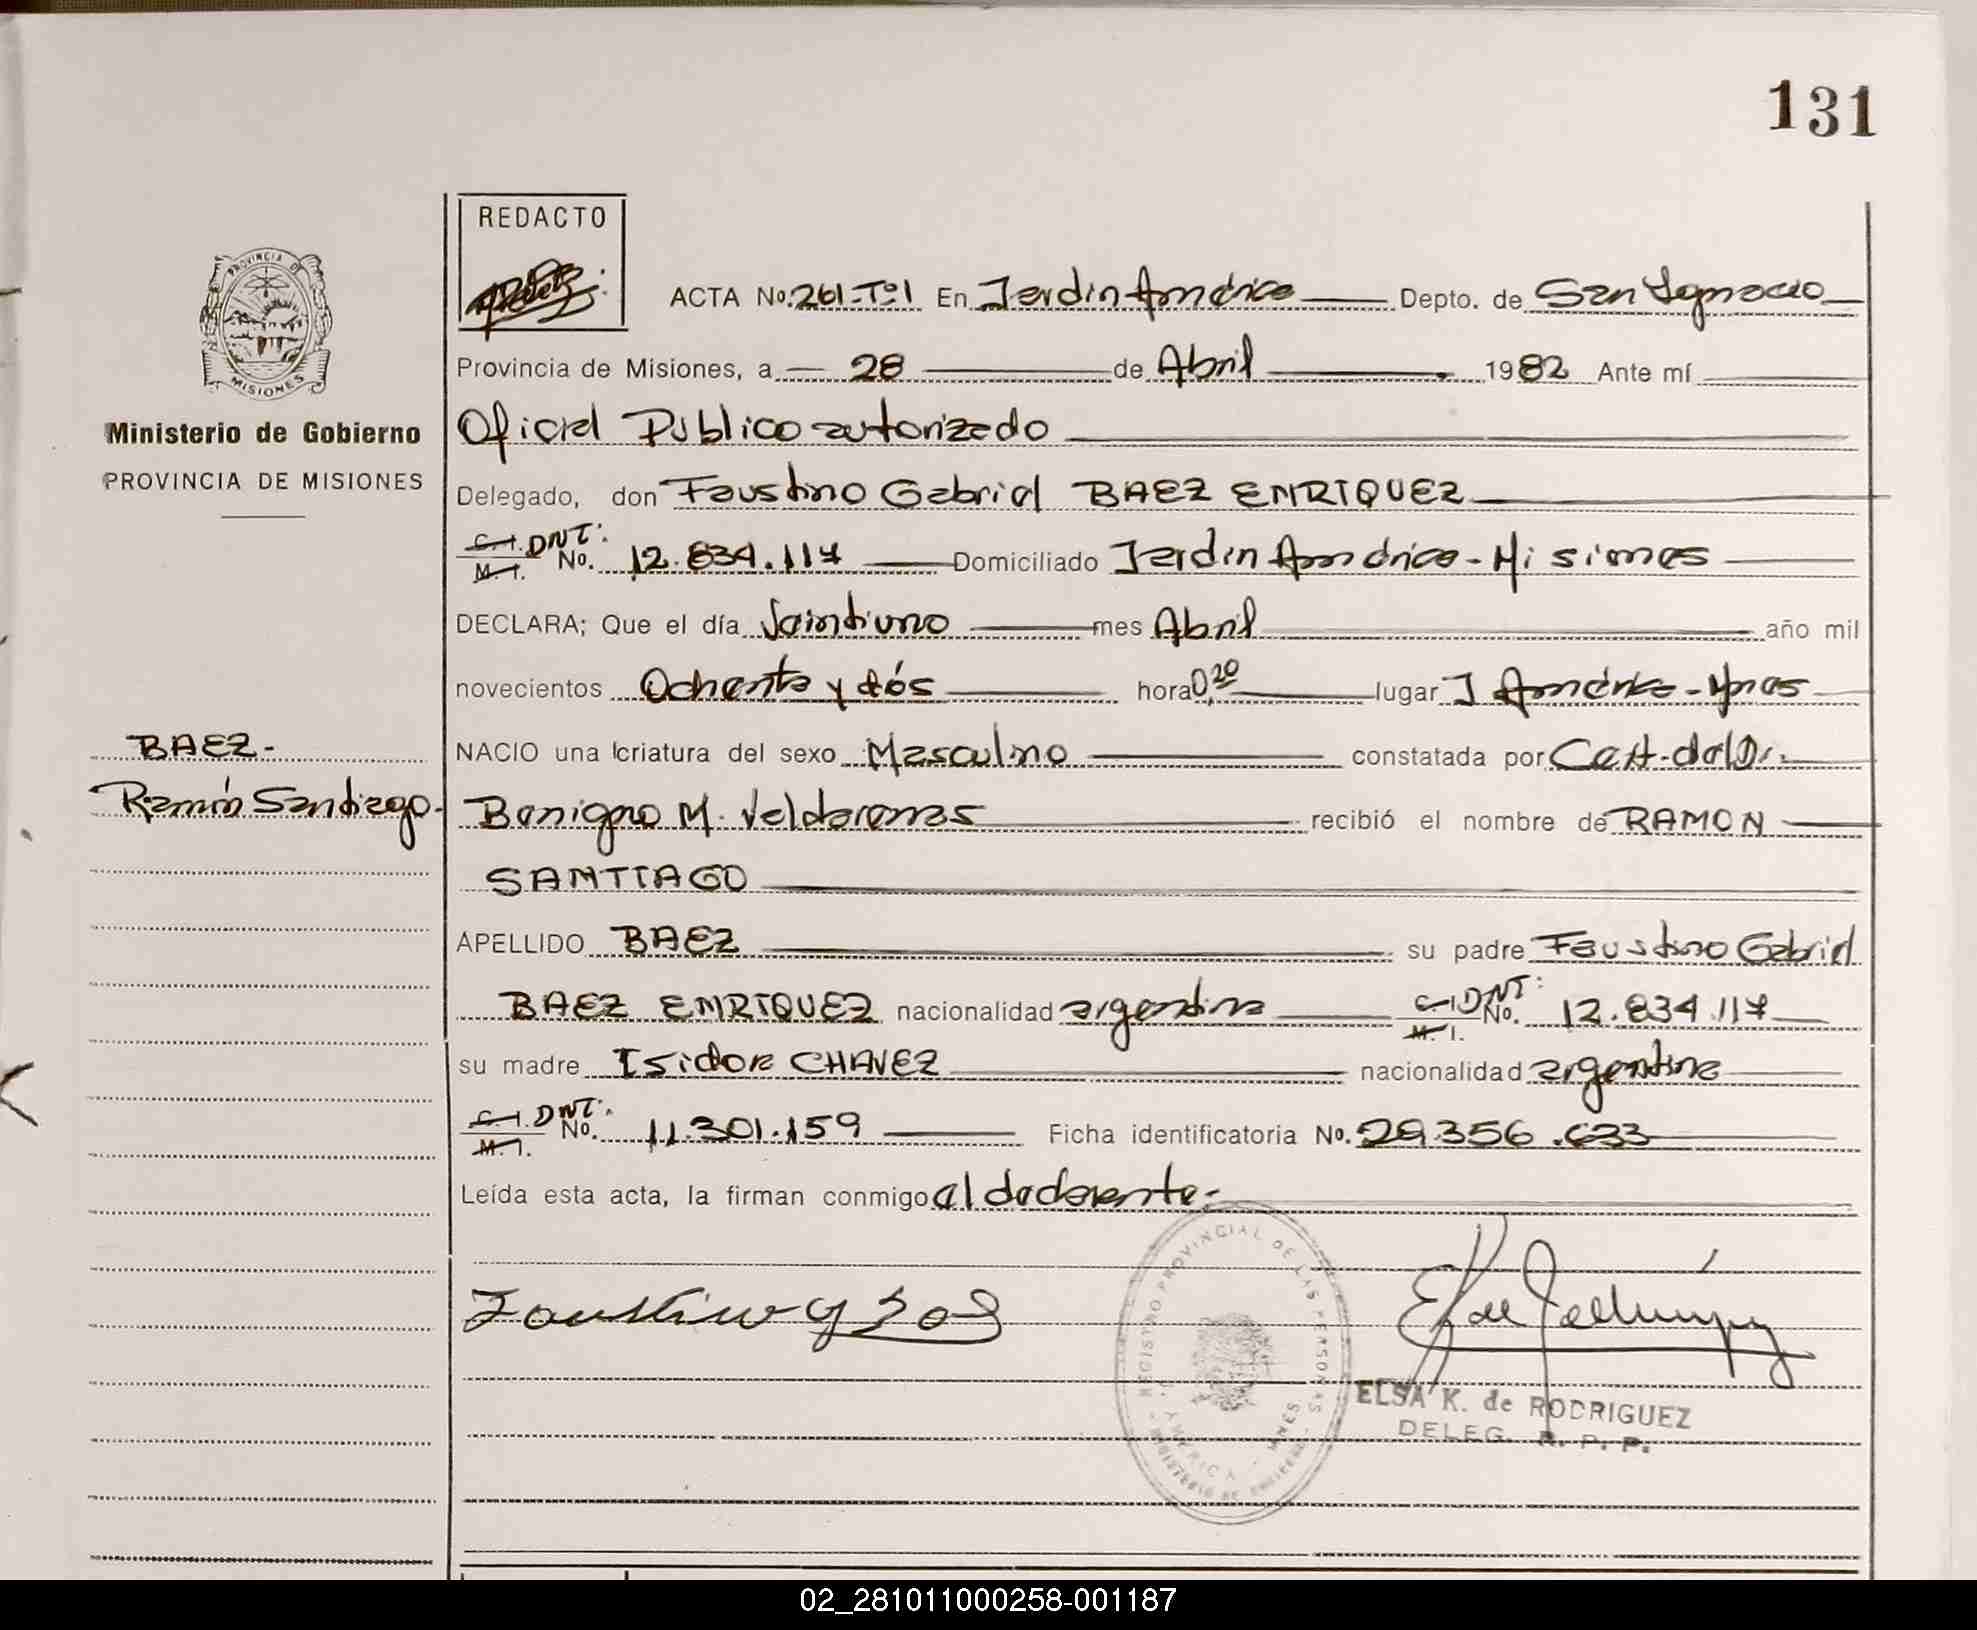 131
REDACTO
PROVINCIA DE
MISIONES
ACTA No. 261-Tº1 En Jardin América Depto. de San Ignacio
Provincia de Misiones, a 28 de Abril 1982 Ante mí
Ministerio de Gobierno
Oficial Publico autorizado
PROVINCIA DE MISIONES
Delegado, don Faustino Gabriel BAEZ ENRIQUEZ
C.I. DNI:
M.I. No. 12.834.117 Domiciliado Jardin América - Misiones
DECLARA; Que el día Veintiuno mes Abril año mil
novecientos Ochenta y dós hora 0,20 lugar J América - Mnes
BAEZ-
NACIO una criatura del sexo Masculino constatada por Cert. del Dr.
Ramón Santiago-
Benigno M. Valdarenas recibió el nombre de RAMON
SANTIAGO
APELLIDO BAEZ su padre Faustino Gabriel
BAEZ ENRIQUEZ nacionalidad argentina C.I. DNI: M.I. No. 12.834.117
su madre Isidora CHAVEZ nacionalidad argentina
C.I. DNI:
M.I. No. 11.301.159 Ficha identificatoria No. 29.356.633
Leída esta acta, la firman conmigo el declarante-
Faustino G
REGISTRO PROVINCIAL DE LAS PERSONAS
AMERICA - MNES.
MINISTERIO DE GOBIERNO
ELSA K. de RODRIGUEZ
DELEG. R. P. P.
02_281011000258-001187